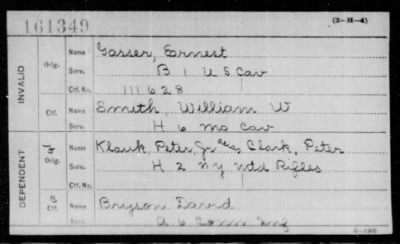 161349
(3-H-4)
INVALID
Orig. Name Gasser, Ernest
Serv. B 1 U S Cav
Ctf. No. 111628
Ctf. Name Smith, William W
Serv. H 6 Mo Cav
DEPENDENT
Orig. Name Klauk, Peter, Jr alias Clark, Peter
Serv. H 2 NY Mtd Rifles
Ctf. No.
Ctf. Name Bryson David
Serv. A 6 Conn Inf